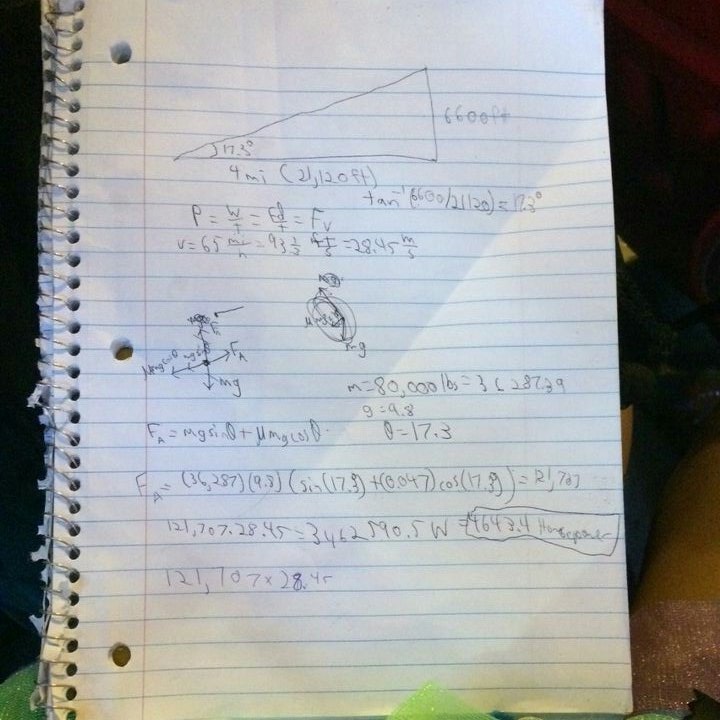 6600ft
17.3°
4mi (21,120ft)
tan⁻¹(6600/21120)=17.3°
P = W/t = Fd/t = Fv
v = 65 mi/h = 93⅓ ft/s = 28.45 m/s
μmgcosθ mgsinθ F_A
mg
μ mg
mg
m=80,000lbs=36287.39
g=9.8
F_A = mgsinθ + μmgcosθ θ=17.3
F_A = (36,287)(9.8)(sin(17.3)+(0.047)cos(17.3))=121,707
121,707·28.45=3462590.5W =4643.4 Horsepower
121,707×28.45